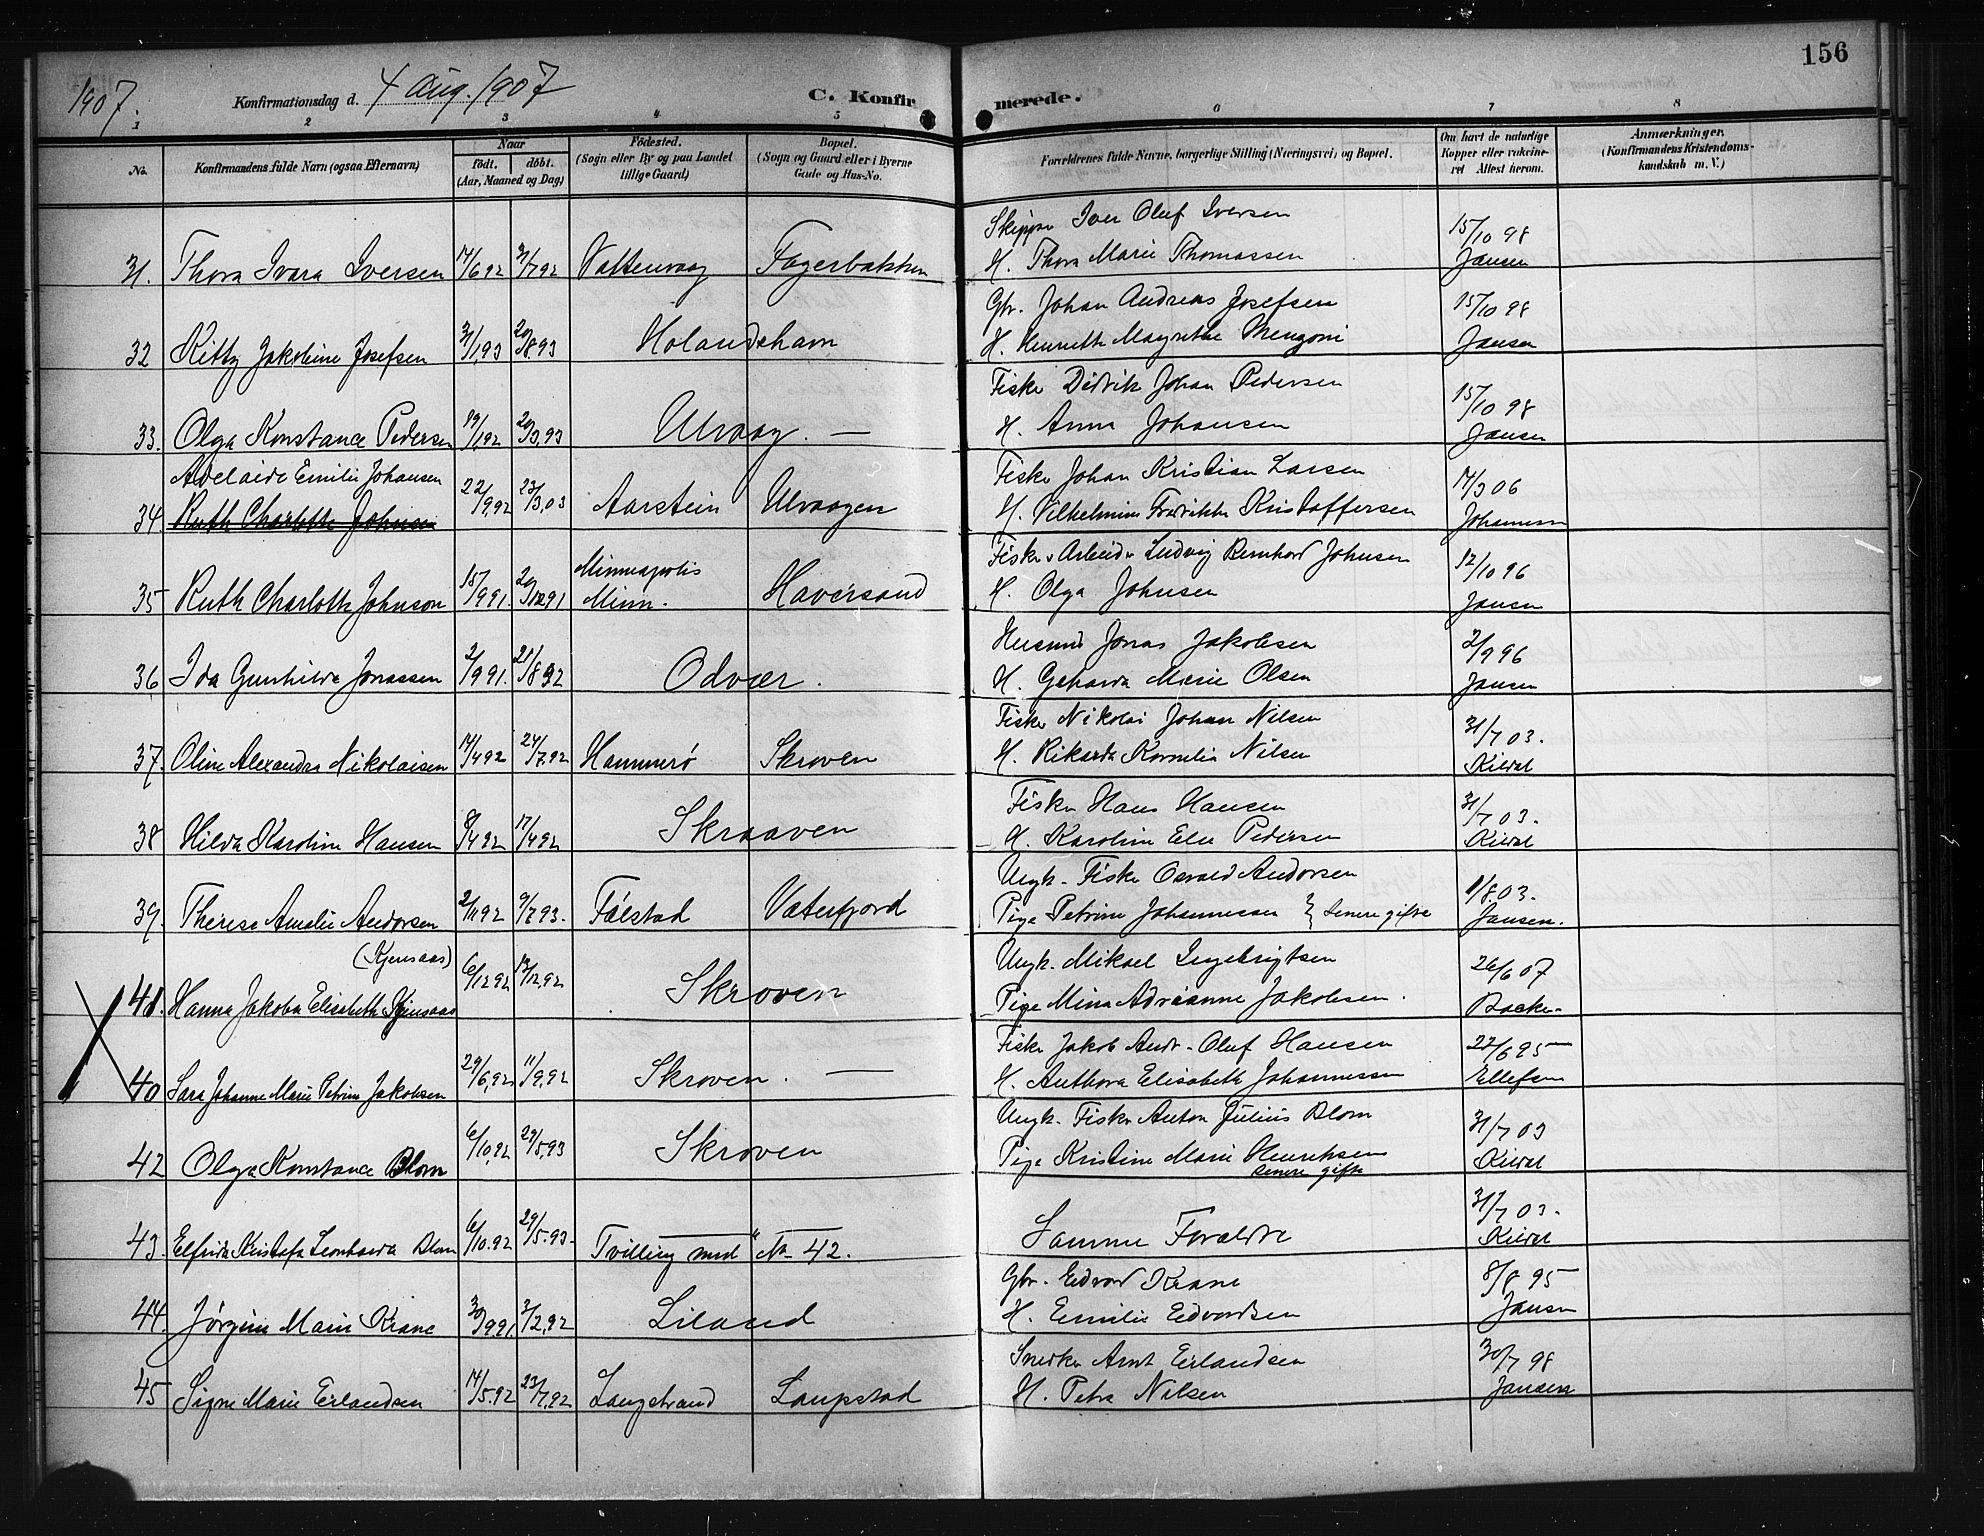 156
1907.
Konfirmationsdag d. 4 Aug. 1907
C. Konfirmerede.
1 2 3 4 5 6 7 8
No.
Konfirmandens fulde Navn (ogsaa Efternavn)
Naar
født. døbt.
(Aar, Maaned og Dag)
Fødested.
(Sogn eller By og paa Landet tillige Gaard)
Bopæl.
(Sogn og Gaard eller i Byerne Gade og Hus-No.
Forældrenes fulde Navne, borgerlige Stilling (Næringsvei) og Bopæl.
Om havt de naturlige Kopper eller vakcineret Attest herom.
Anmærkninger.
(Konfirmandens Kristendomskundskab m. V.)
Skipper Iver Oluf Iversen 15/10 98
31. Thora Ivara Iversen 14/6 92 31/7 92 Vattervaag Fagerbakken H. Thora Marie Thomassen Jansen
Gbr. Johan Andreas Josefsen 15/10 98
32 Kitty Jakobine Josefsen 31/1,93 20/8 93 Holandshavn H. Henrette Magrethe Mengoni Jansen
Fisker Didrik Johan Pedersen 15/10 98
33. Olga Konstance Pedersen 19/1,92 20/3,93 Ulvaag. — H. Anna Johansen Jansen
Adelaide Emilie Johansen Fisker Johan Kristian Larsen 14/3 06
34 Ruth Charlotte Johnsen 22/9,92 23/3,03 Aarstein Ulvaagen H. Vilhelmine Fredrikke Kristoffersen Johannesen
Minneapolis Fisker & Arbeider Ludvig Bernhard Johnsen 12/10 96
35 Ruth Charlotte Johnson 15/9 91. 20/12 91 Minn. Haversand H. Olga Johnsen Jansen
Husmd Jonas Jakobsen 2/9 96
36 Ida Gunhilda Jonassen 2/9 91. 21/8 92 Odvær. H. Geharda Marie Olsen Jansen
Fisker Nikolai Johan Nilsen 31/7 03.
37. Oline Alexandra Nikolaisen 14/4 92 24/7,92 Hammerö Skroven H. Rikarda Kornelia Nilsen Kildal
Fisker Hans Hansen 31/7 03.
38 Hilda Karoline Hansen 8/4 92 17/4 92 Skraaven H. Karoline Elen Pedersen Kildal
Ungk. Fisker Osvald Andorsen 1/8. 03.
39. Therese Amalie Andorsen 2/11 92 9/7 93. Falstad Vaterfjord Pige Petrine Johannesen } Senere gifte Jansen.
(Kjensaas) Ungk. Mikael Ingebrigtsen 26/6 07
41. Hanna Jakoba Elisabeth Kjensaas 6/12 92 13/12,92 Skroven Pige Mina Adrianne Jakobsen. Backer
Fisker Jakob Andr. Oluf Hansen 27/6 95
40 Sara Johanne Marie Petrine Jakobsen 29/6,92 11/9,92 Skroven. — H. Anthora Elisabeth Johannessen Ellefsen
Ungk. Fisker Anton Julius Blom 31/7 03
42 Olga Konstance Blom 6/10,92 29/5,93 Skroven Pige Kristine Marie Henriksen Kildal
senere gifte
31/7 03.
43. Elfrida Kristofa Leonharda Blom 6/10.92 29/5.93. Tvilling med No. 42. Samme Foraldre Kildal
Gbr. Edvard Krane 8/8 95
44. Jørgine Marie Krane 30/9 91. 3/2,92 Liland H. Emilie Edvardsen Jansen
Snedker Arnt Erlandsen 30/7 98
45 Signe Marie Erlandsen 14/5.92 23/7,92 Langstrand Laupstad H. Petra Nilsen Jansen